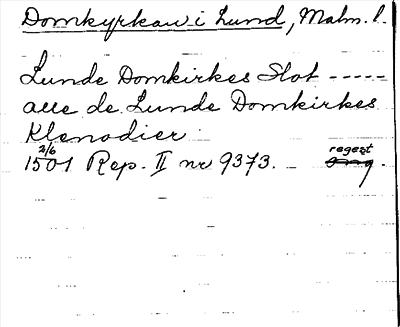 Domkyrkan i Lund, Malm. l.
Lunde Domkirkes Slot -----
alle de Lunde Domkirkes
Klenodier.
2/6 regest
1501 Rep. II nr 9373. - .